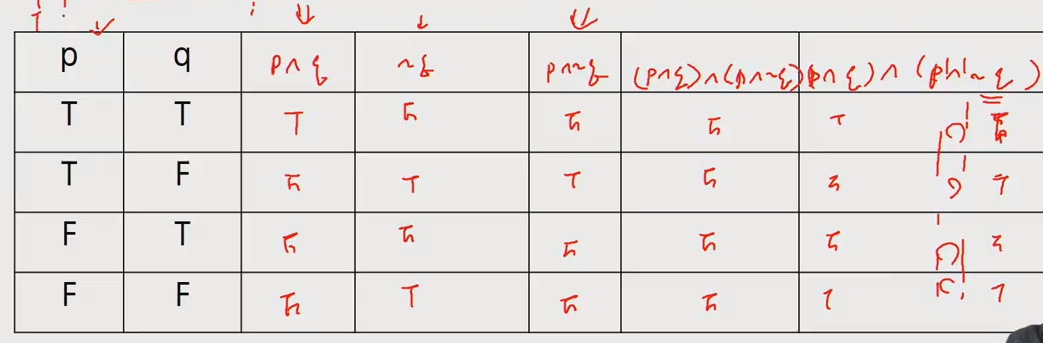 p q p∧q ~q p∧~q (p∧q)∧(p∧~q) (p∧q)∧(p∧~q)
T T T F F F T
T F F T T F
F T F F F F
F F F T F F